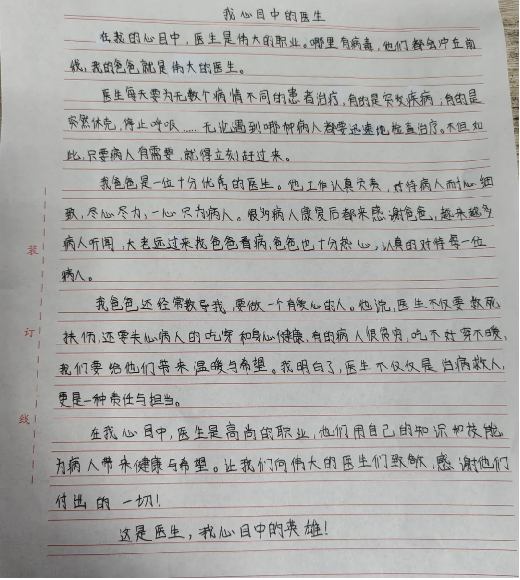 我心目中的医生
在我的心目中，医生是伟大的职业。哪里有病毒，他们都会冲在前
线，我的爸爸就是伟大的医生。
医生每天要为无数个病情不同的患者治疗，有的是突发疾病，有的是
突然休克，停止呼吸……无论遇到哪种病人都要迅速地检查治疗。不但如
此，只要病人有需要，就得立刻赶过来。
我爸爸是一位十分优秀的医生。他工作认真负责，对待病人耐心细
致，尽心尽力，一心只为病人。很多病人康复后都来感谢爸爸，越来越多
病人听闻，大老远过来找爸爸看病，爸爸也十分热心，认真的对待每一位
病人。
我爸爸还经常教导我，要做一个有爱心的人。他说，医生不仅要救死
扶伤，还要关心病人的吃穿和身心健康，有的病人很贫穷，吃不好穿不暖，
我们要给他们带来温暖与希望。我明白了，医生不仅仅是治病救人，
更是一种责任与担当。
在我心目中，医生是高尚的职业，他们用自己的知识和技能
为病人带来健康与希望。让我们向伟大的医生们致敬，感谢他们
付出的一切！
这是医生，我心目中的英雄！
装
订
线